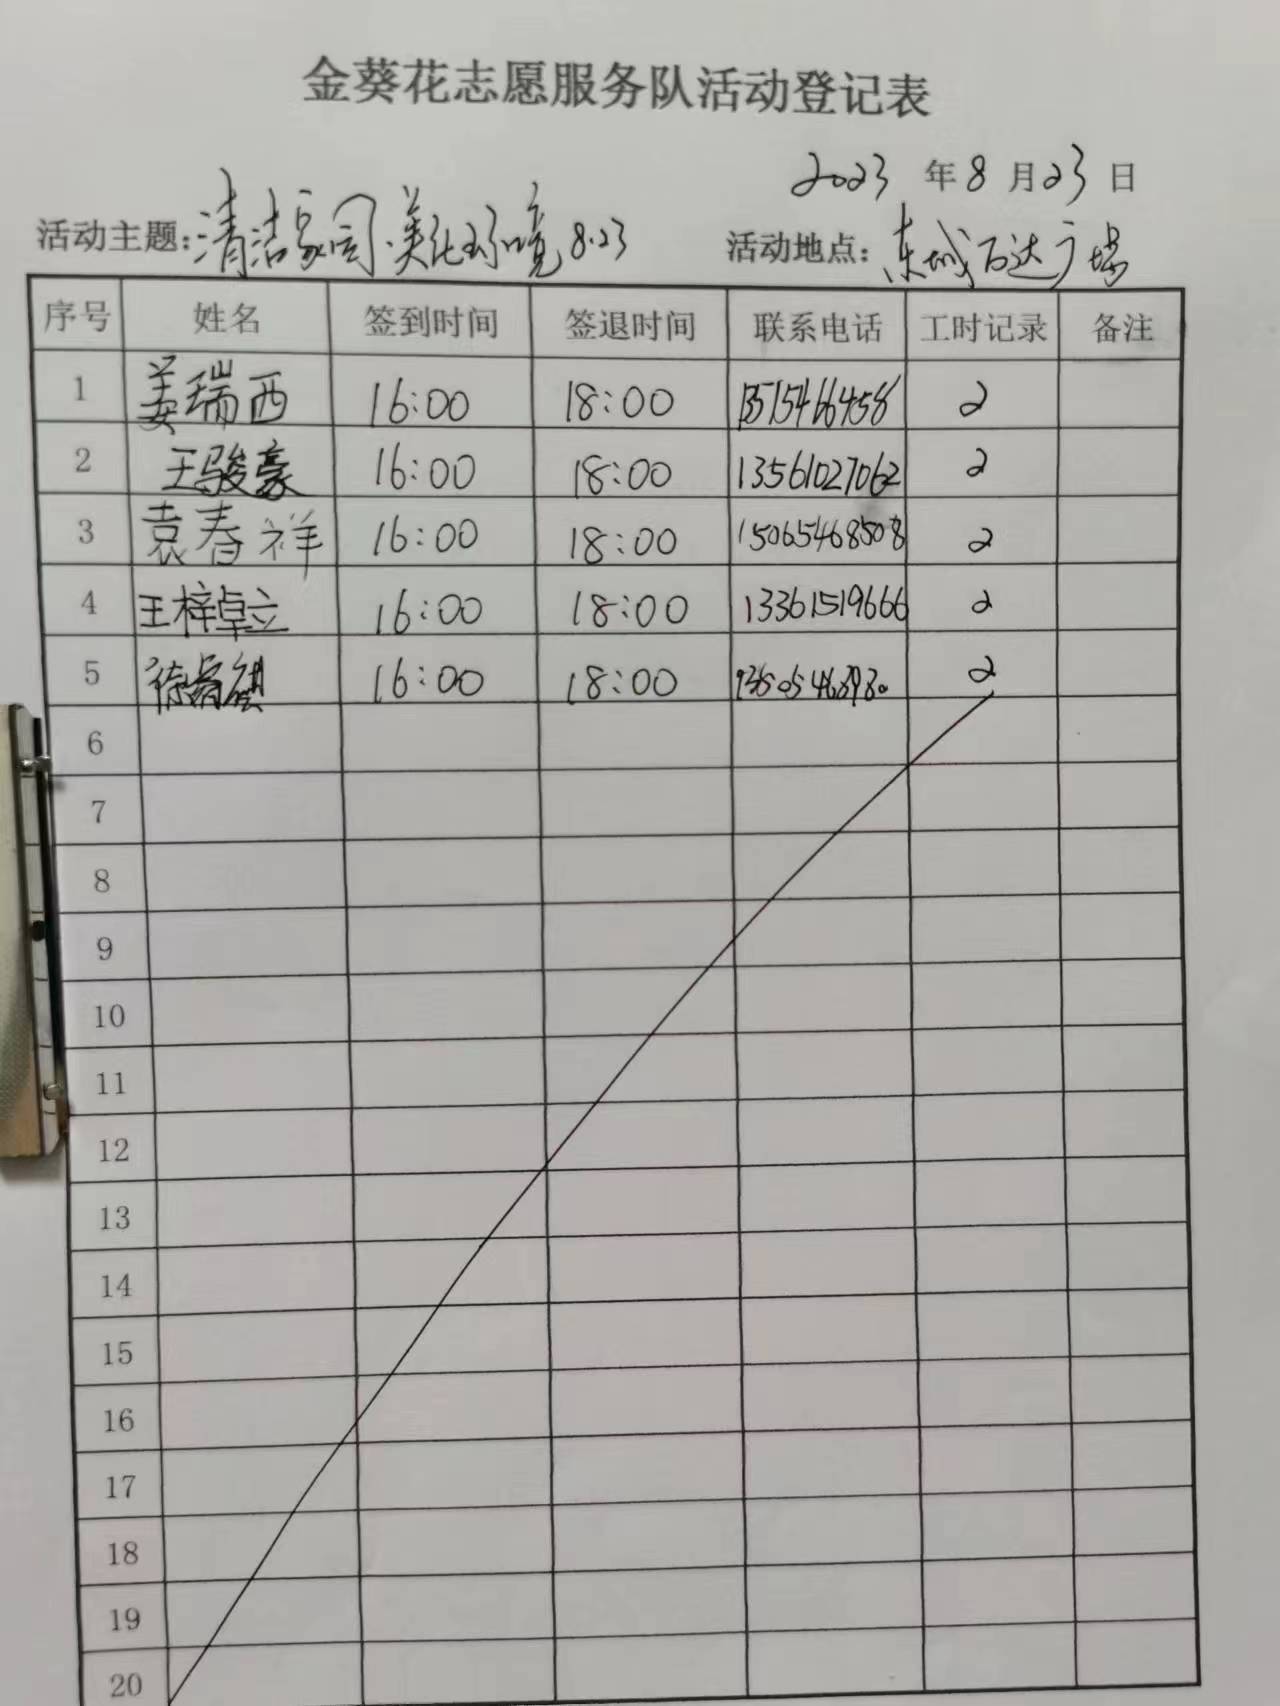 金葵花志愿服务队活动登记表
2023 年 8 月 23 日
活动主题: 清洁家园·美化环境 8.23 活动地点: 东城万达广场
序号 姓名 签到时间 签退时间 联系电话 工时记录 备注
1 姜瑞西 16:00 18:00 13515466458 2
2 王骏豪 16:00 18:00 13561027062 2
3 袁春祥 16:00 18:00 15065468508 2
4 王梓卓立 16:00 18:00 13361519666 2
5 徐 16:00 18:00 2
6
7
8
9
10
11
12
13
14
15
16
17
18
19
20